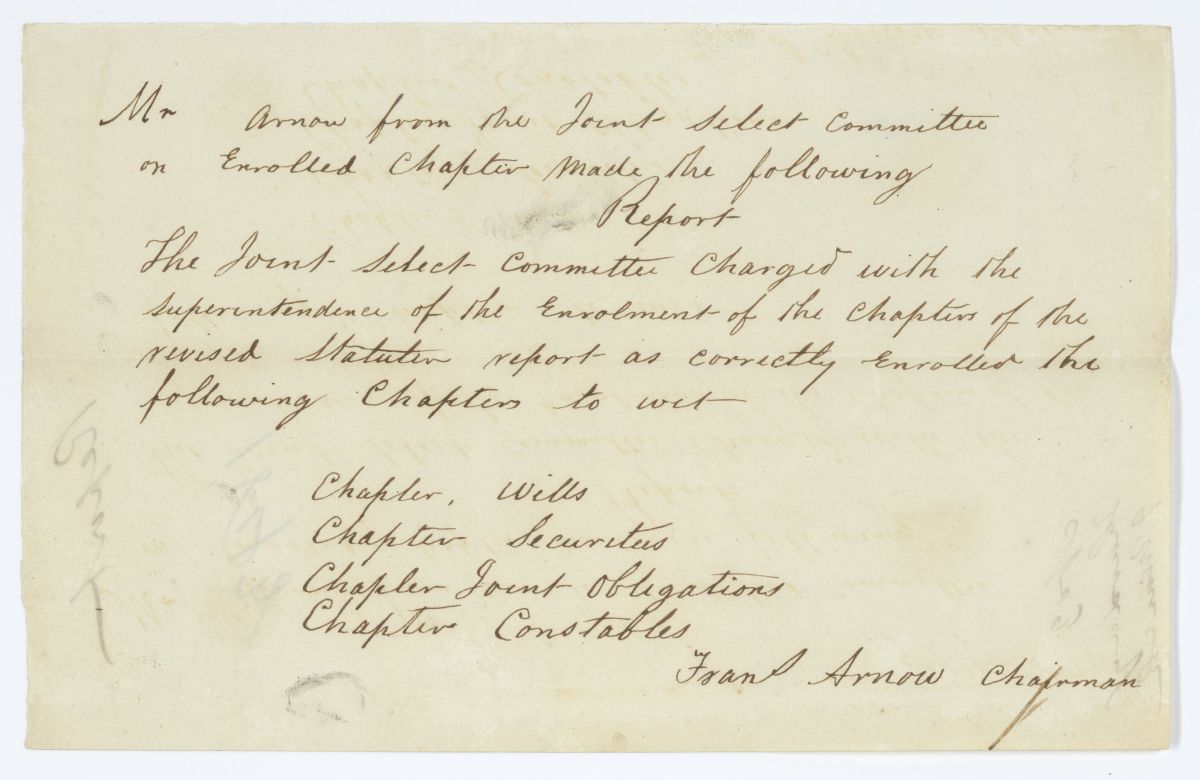 Mr Arnow from the Joint Select Committee
on Enrolled Chapter made the following
Report
The Joint Select Committee Charged with the
superintendence of the Enrolment of the Chapters of the
revised Statutes report as correctly Enrolled the
following Chapters to wit
Chapter, Wills
Chapter Securities
Chapter Joint Obligations
Chapter Constables
Arnow Chairman